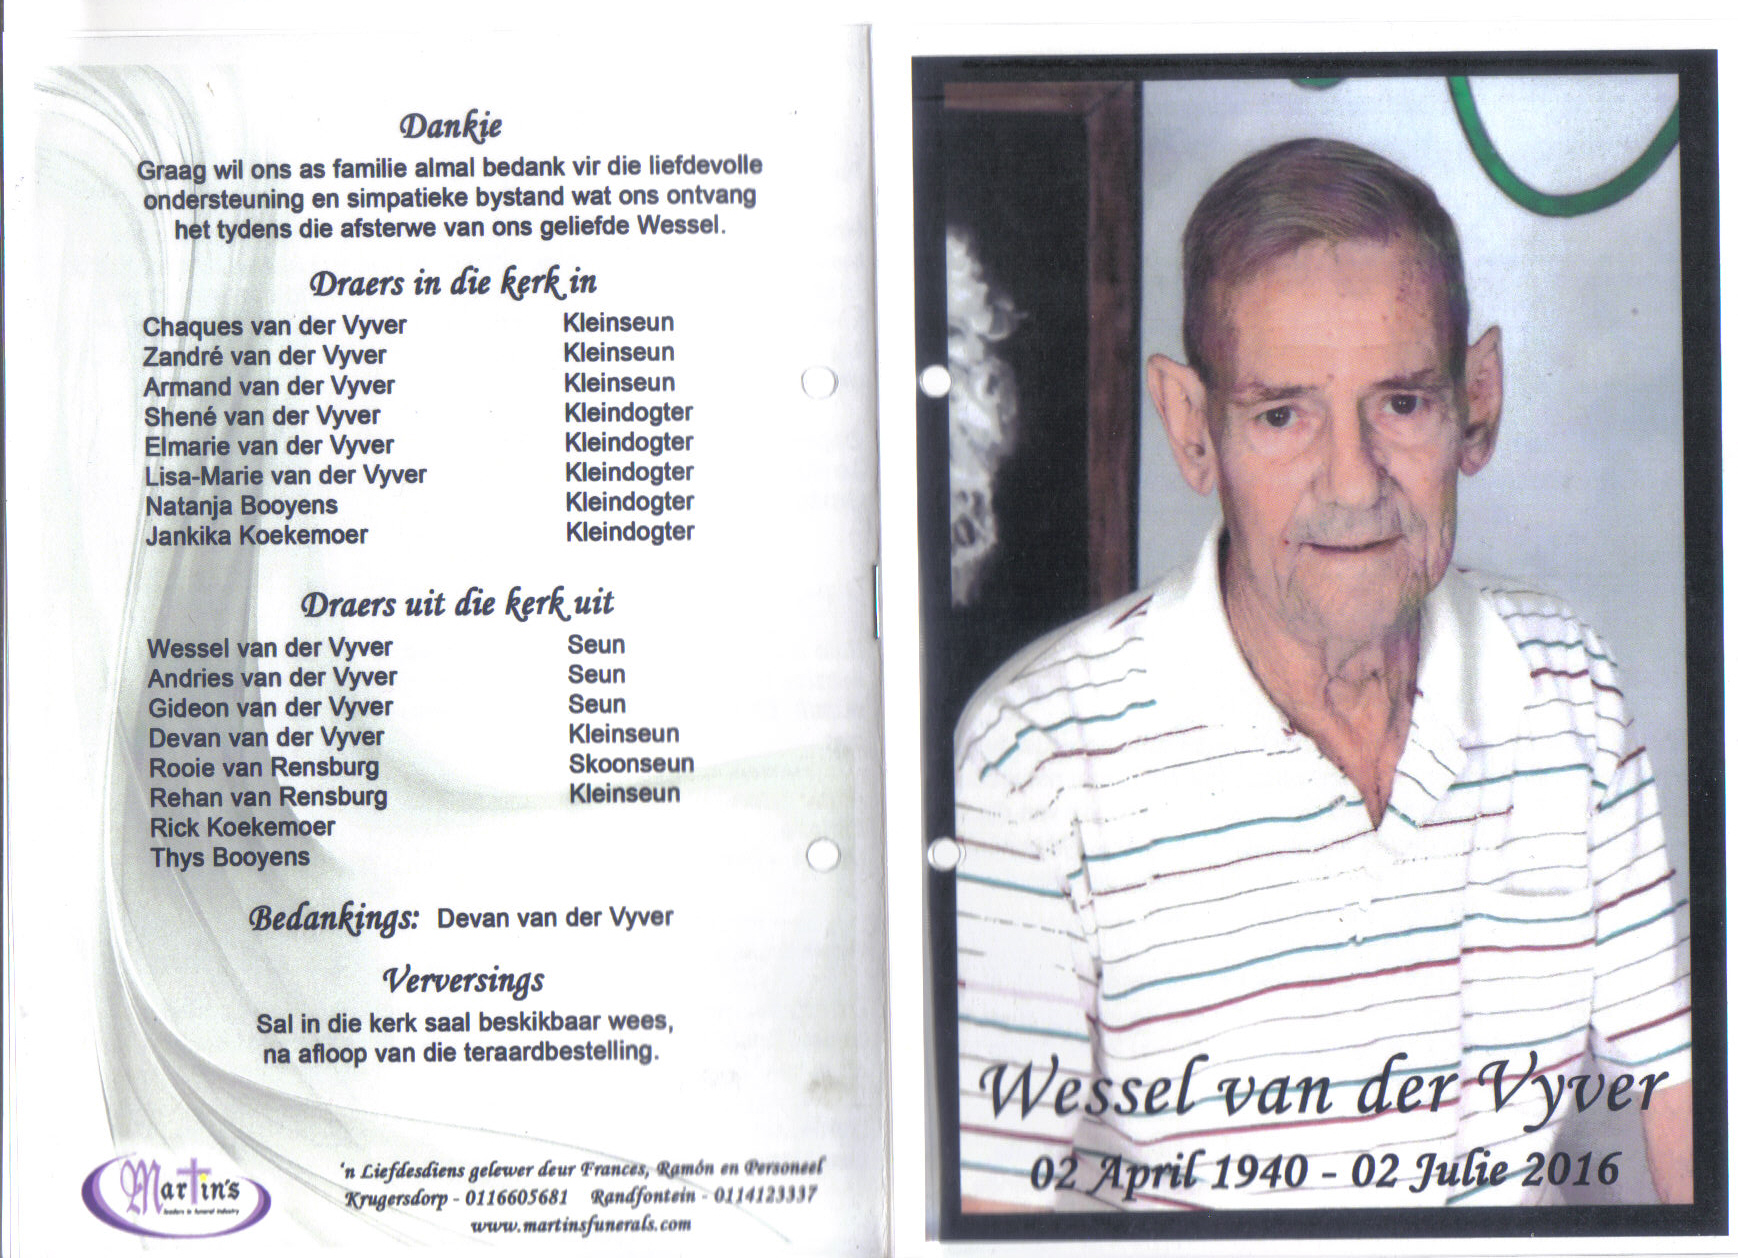 Dankie
Graag wil ons as familie almal bedank vir die liefdevolle
ondersteuning en simpatieke bystand wat ons ontvang
het tydens die afsterwe van ons geliefde Wessel.
Draers in die kerk in
Chaques van der Vyver Kleinseun
Zandré van der Vyver Kleinseun
Armand van der Vyver Kleinseun
Shené van der Vyver Kleindogter
Elmarie van der Vyver Kleindogter
Lisa-Marie van der Vyver Kleindogter
Natanja Booyens Kleindogter
Jankika Koekemoer Kleindogter
Draers uit die kerk uit
Wessel van der Vyver Seun
Andries van der Vyver Seun
Gideon van der Vyver Seun
Devan van der Vyver Kleinseun
Rooie van Rensburg Skoonseun
Rehan van Rensburg Kleinseun
Rick Koekemoer
Thys Booyens
Bedankings: Devan van der Vyver
Verversings
Sal in die kerk saal beskikbaar wees,
na afloop van die teraardbestelling.
Martin's
leaders in funeral industry
'n Liefdesdiens gelewer deur Frances, Ramón en Personeel
Krugersdorp - 0116605681 Randfontein - 0114123337
www.martinsfunerals.com
Wessel van der Vyver
02 April 1940 - 02 Julie 2016